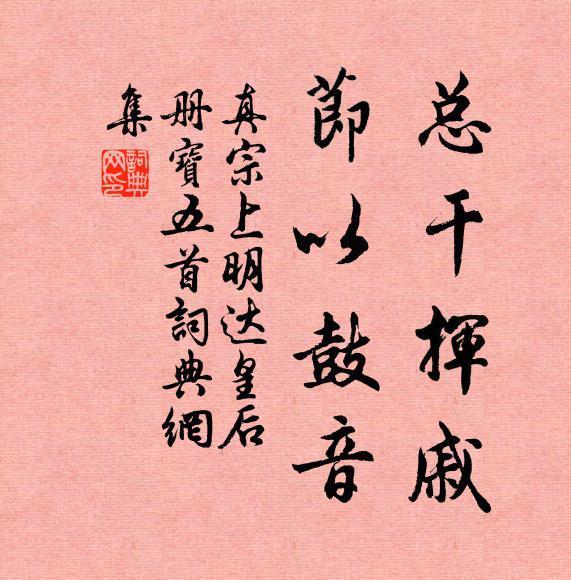 总干揮戚
節以鼓音
真宗上明达皇后
册寶五首詞典網
集
詞典网印